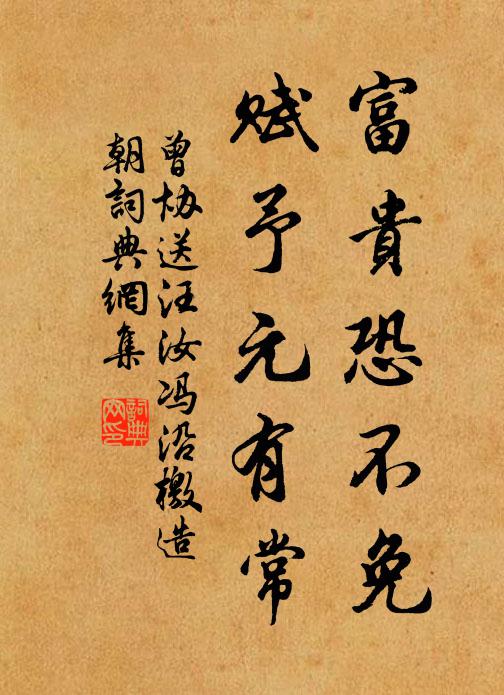 富貴恐不免
賦予元有常
曾協送汪汝冯沿檄造
朝詞典網集
詞典
网印